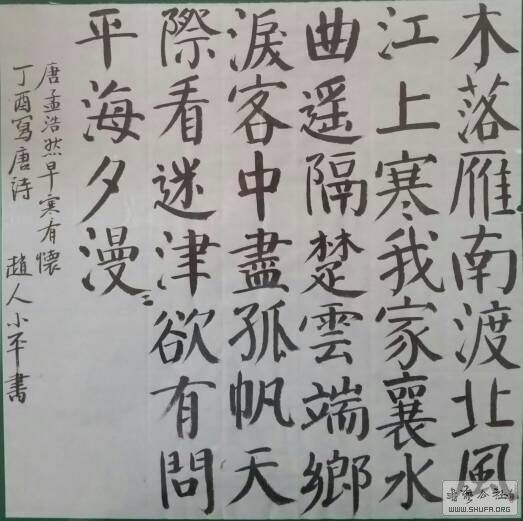 木落雁南渡北風
江上寒我家襄水
曲遥隔楚雲端鄉
淚客中盡孤帆天
際看迷津欲有問
平海夕漫〻
唐孟浩然早寒有懷
丁酉寫唐诗 趙人小平書
WWW.SHUFA.ORG